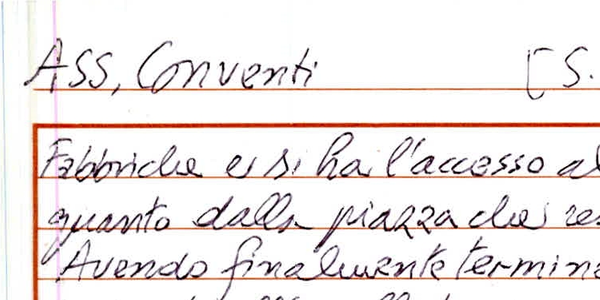 ASS, Conventi [S.
Fabbriche e si ha l'accesso al
quanto dalla piazza che
Avendo finalmente termina